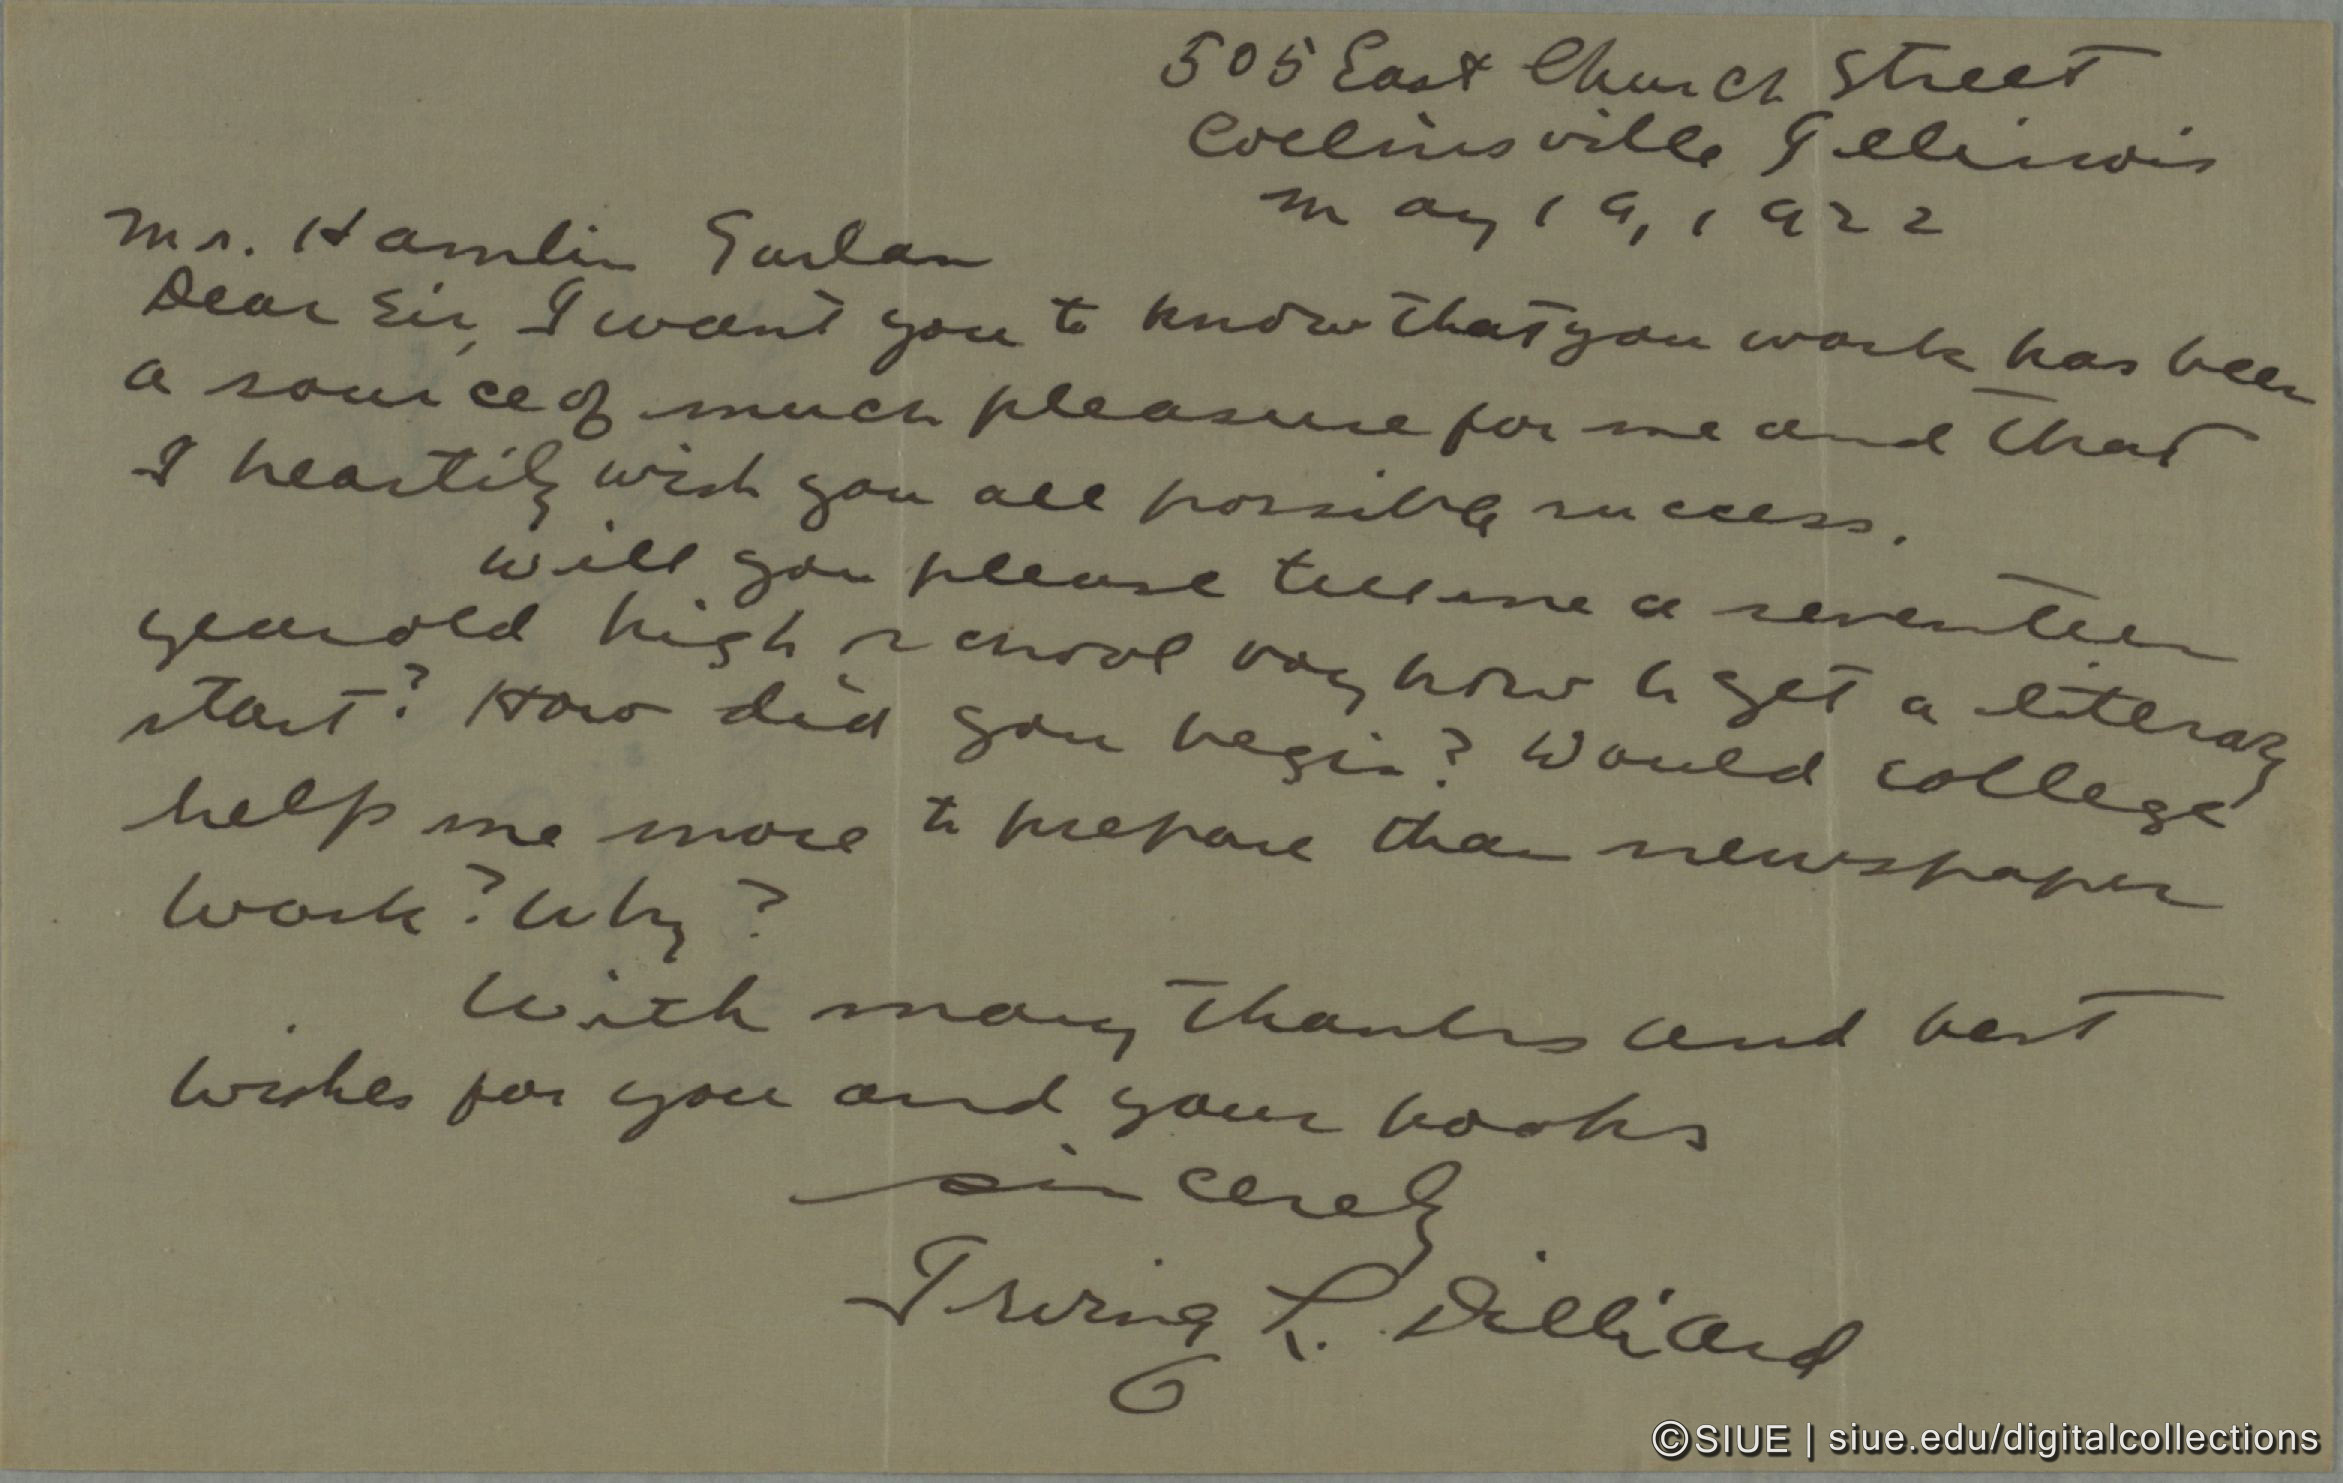 505 East Church Street
Collinsville Illinois
May 19, 1922
Mr. Hamlin Garlan
Dear Sir, I want you to know that you work has been
a source of much pleasure for me and that
I heartily wish you all possible success.
Will you please tell me a seventeen
year old high school boy how to get a literary
start? How did you begin? Would college
help me more to prepare than newspaper
work? Why?
With many thanks and best
wishes for you and your books
Sincerely
Irving L. Dilliard
©SIUE | siue.edu/digitalcollections